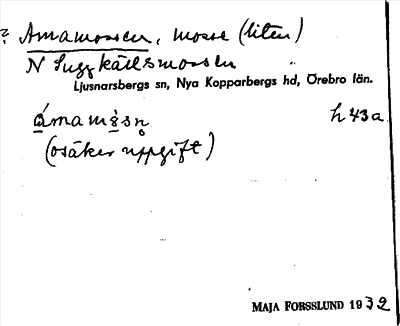 ? Amamossen, mosse (liten)
N Suggkällsmossen
Ljusnarsbergs sn, Nya Kopparbergs hd, Örebro län.
ámamsn h 43a
(osäker uppgift)
MAJA FORSSLUND 1932